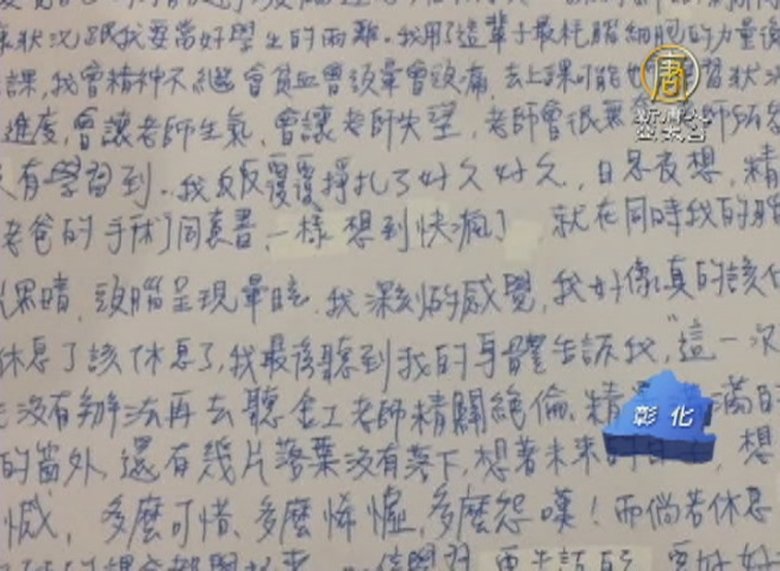 狀況跟我要當好學生的兩難。我用了這輩子最耗腦細胞的力量
課,我會精神不繼會貧血會頭暈會頭痛,去上課可能 習狀
進度,會讓老師生氣,會讓老師失望,老師會很無 師所
有學習到。我反反覆覆掙扎了好久好久,日思夜想,精
老爸的手術同意書,一樣想到快瘋了 就在同時我的
黑暗,頭腦呈現暈眩,我深刻的感覺,我好像真的該休
休息了該休息了,我最後聽到我的身體告訴我,"這一次
沒有辦法再去聽舍工老師精闢絕倫、精 滿
的窗外,還有幾片落葉沒有落下,想著未來的 想
憾,多麼可惜、多麼悕噓,多麼怨嘆!而倘若休息
唐
新唐人
亞太台
彰化